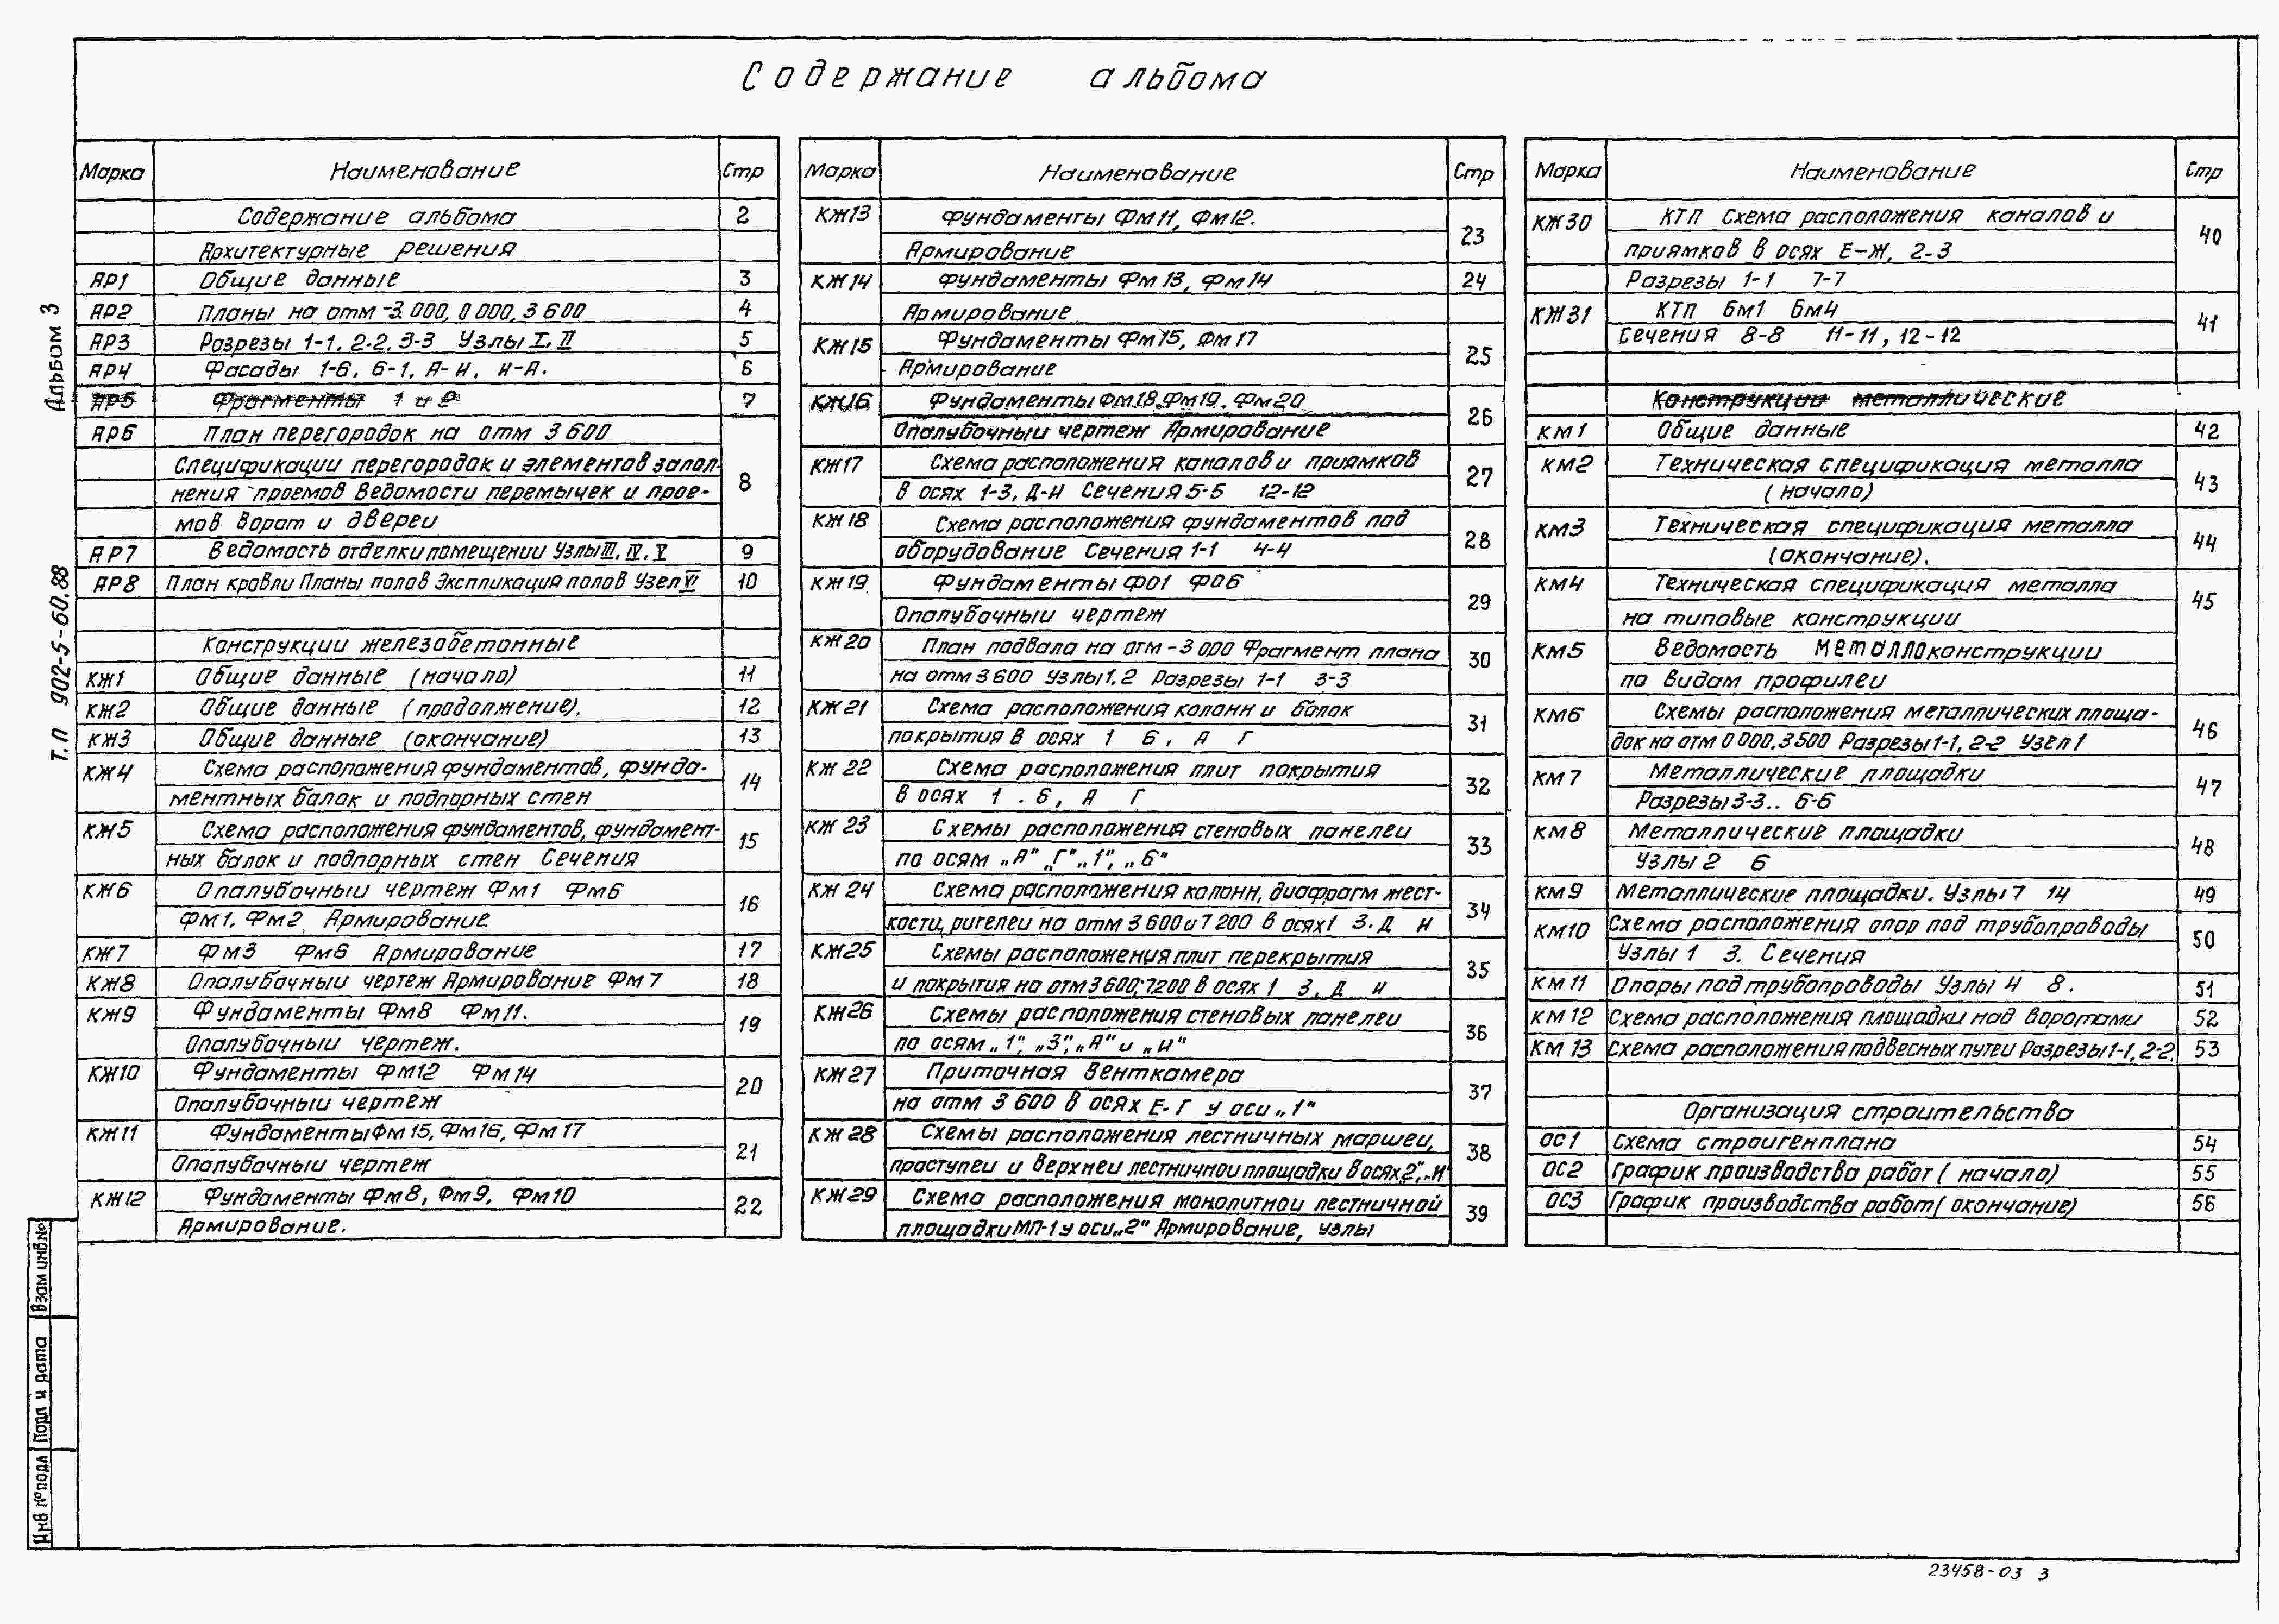 Содержание альбома
Альбом 3
Т.П 902-5-60.88
Марка Наименование Стр
Содержание альбома 2
Архитектурные решения
АР1 Общие данные 3
АР2 Планы на отм -3.000, 0 000, 3 600 4
АР3 Разрезы 1-1, 2-2, 3-3 Узлы I, II 5
АР4 Фасады 1-6, 6-1, А-И, И-А. 6
АР5 Фрагменты 1 и 2 7
АР6 План перегородок на отм 3 600
Спецификации перегородок и элементов запол-
нения проемов Ведомости перемычек и прое- 8
мов ворот и двереи
АР7 Ведомость отделки помещении Узлы III, IV, V 9
АР8 План кровли Планы полов Экспликация полов Узел VI 10
Конструкции железобетонные
КЖ1 Общие данные (начало) 11
КЖ2 Общие данные (продолжение). 12
КЖ3 Общие данные (окончание) 13
КЖ4 Схема расположения фундаментов, фунда-
ментных балок и подпорных стен 14
КЖ5 Схема расположения фундаментов, фундамент-
ных балок и подпорных стен Сечения 15
КЖ6 Опалубочныи чертеж Фм1 Фм6
Фм1, Фм2 Армирование 16
КЖ7 Фм3 Фм6 Армирование 17
КЖ8 Опалубочныи чертеж Армирование Фм7 18
КЖ9 Фундаменты Фм8 Фм11.
Опалубочныи чертеж. 19
КЖ10 Фундаменты Фм12 Фм14
Опалубочныи чертеж 20
КЖ11 Фундаменты Фм15, Фм16, Фм17
Опалубочныи чертеж 21
КЖ12 Фундаменты Фм8, Фм9, Фм10
Армирование. 22
Марка Наименование Стр
КЖ13 Фундаменты Фм11, Фм12.
Армирование 23
КЖ14 Фундаменты Фм13, Фм14 24
Армирование
КЖ15 Фундаменты Фм15, Фм17
Армирование 25
КЖ16 Фундаменты Фм18, Фм19, Фм20
Опалубочныи чертеж Армирование 26
КЖ17 Схема расположения каналов и приямков
в осях 1-3, Д-И Сечения 5-5 12-12 27
КЖ18 Схема расположения фундаментов под
оборудование Сечения 1-1 4-4 28
КЖ19 Фундаменты Ф01 Ф06
Опалубочныи чертеж 29
КЖ20 План подвала на отм -3 000 Фрагмент плана
на отм 3 600 Узлы 1, 2 Разрезы 1-1 3-3 30
КЖ21 Схема расположения колонн и балок
покрытия в осях 1 6, А Г 31
КЖ22 Схема расположения плит покрытия
в осях 1 . 6, А Г 32
КЖ23 Схемы расположения стеновых панелеи
по осям „А" „Г" „1", „6" 33
КЖ24 Схема расположения колонн, диафрагм жест-
кости, ригелеи на отм 3 600 и 7 200 в осях 1 3. Д И 34
КЖ25 Схемы расположения плит перекрытия
и покрытия на отм 3 600; 7200 в осях 1 3, Д И 35
КЖ26 Схемы расположения стеновых панелеи
по осям „1", „3", „А" и „И" 36
КЖ27 Приточная венткамера
на отм 3 600 в осях Е-Г у оси „1" 37
КЖ28 Схемы расположения лестничных маршеи,
проступеи и верхнеи лестничнои площадки в осях „2", „И" 38
КЖ29 Схема расположения монолитнои лестничной
площадки МП-1 у оси „2" Армирование, узлы 39
Марка Наименование Стр
КЖ30 КТП Схема расположения каналов и
приямков в осях Е-Ж, 2-3 40
Разрезы 1-1 7-7
КЖ31 КТП Бм1 Бм4
Сечения 8-8 11-11, 12-12 41
Конструкции металлические
КМ1 Общие данные 42
КМ2 Техническая спецификация металла
(начало) 43
КМ3 Техническая спецификация металла
(окончание). 44
КМ4 Техническая спецификация металла
на типовые конструкции 45
КМ5 Ведомость металлоконструкции
по видам профилеи
КМ6 Схемы расположения металлических площа-
док на отм 0 000, 3 500 Разрезы 1-1, 2-2 Узел 1 46
КМ7 Металлические площадки
Разрезы 3-3.. 6-6 47
КМ8 Металлические площадки
Узлы 2 6 48
КМ9 Металлические площадки. Узлы 7 14 49
КМ10 Схема расположения опор под трубопроводы
Узлы 1 3. Сечения 50
КМ11 Опоры под трубопроводы Узлы 4 8. 51
КМ12 Схема расположения площадки над воротами 52
КМ13 Схема расположения подвесных путеи Разрезы 1-1, 2-2. 53
Организация строительства
ОС1 Схема строигенплана 54
ОС2 График производства работ ( начало) 55
ОС3 График производства работ ( окончание) 56
Взам инв.№
Подп и дата
Инв № подл
23458-03 3